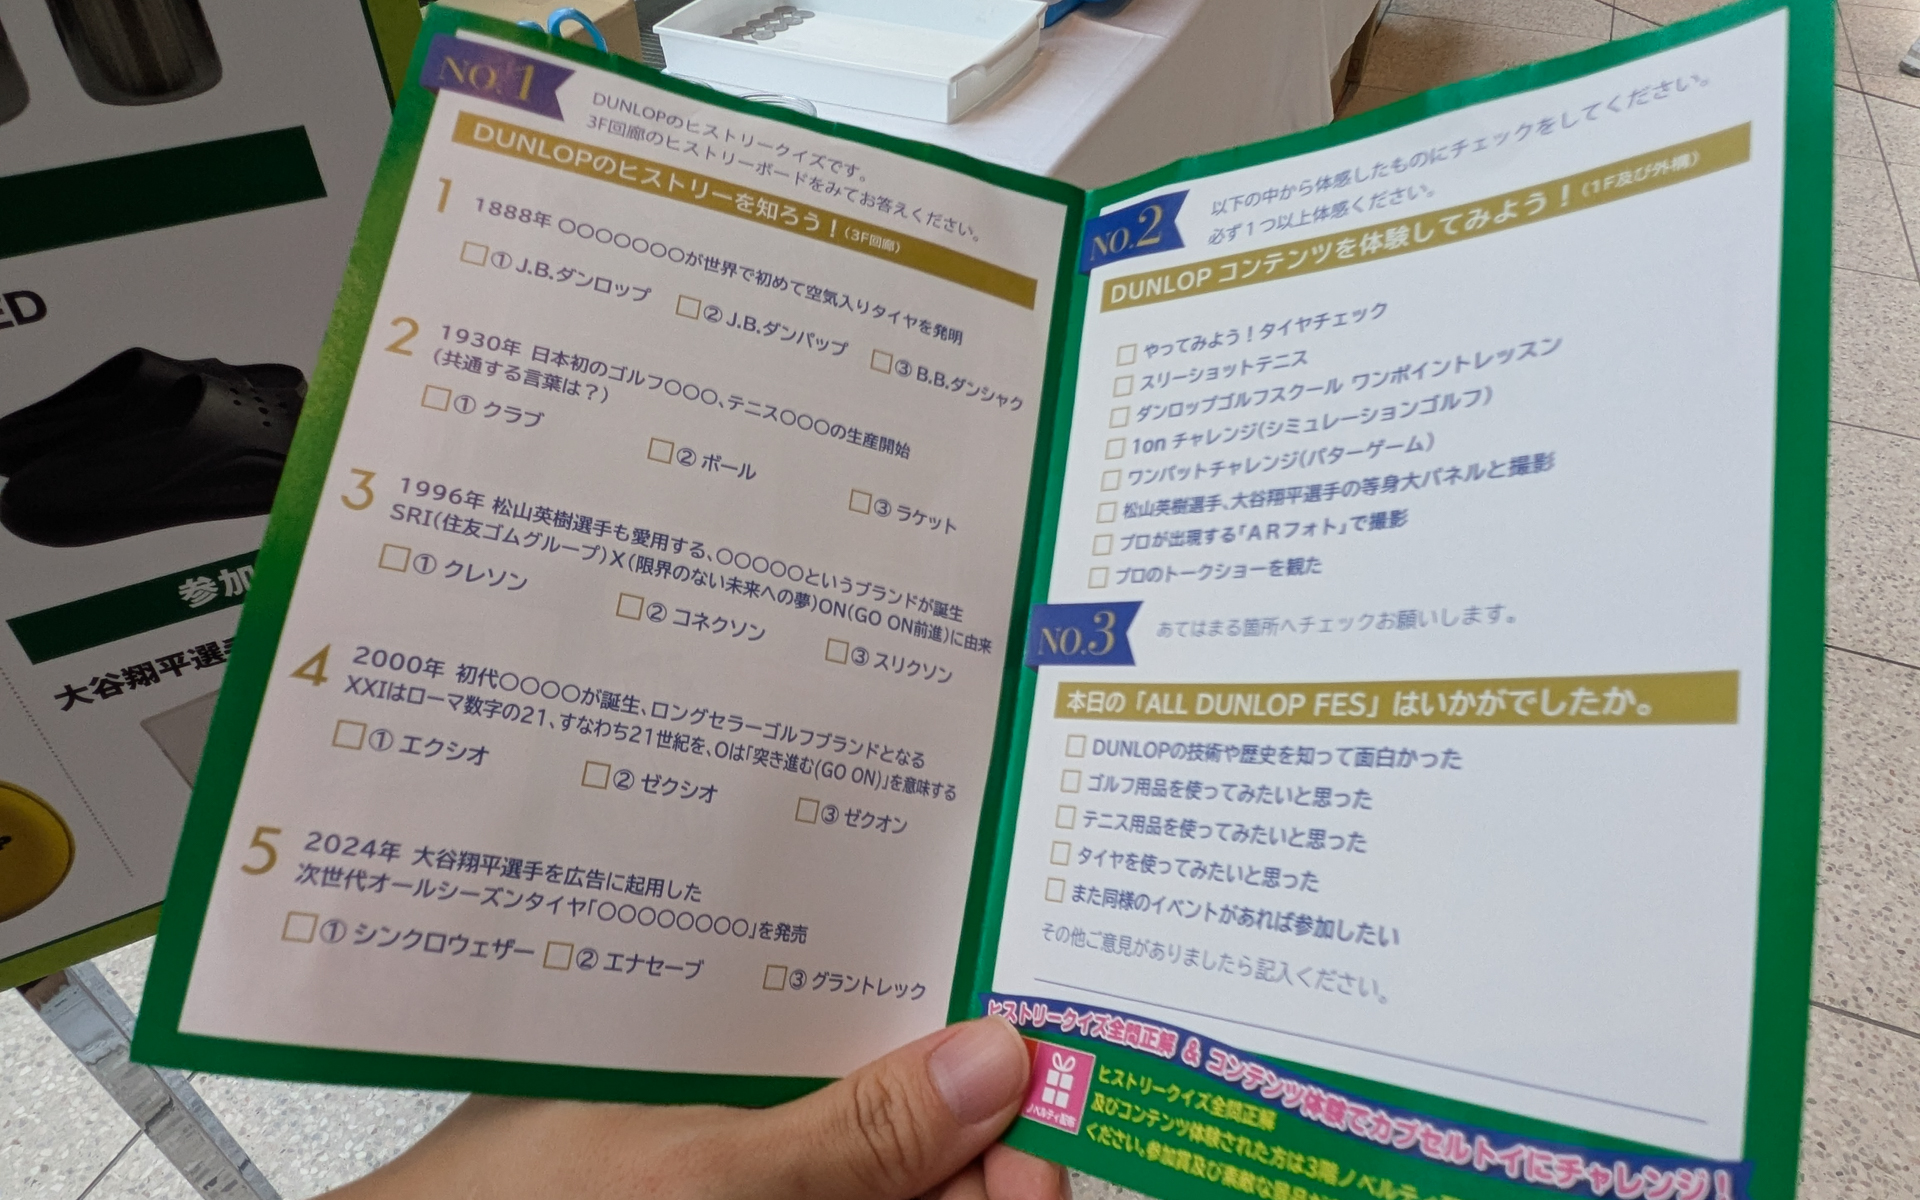 ED
参加
大谷翔平選手
NO.1
DUNLOPのヒストリークイズです。
3F回廊のヒストリーボードをみてお答えください。
DUNLOPのヒストリーを知ろう！（3F回廊）
1 1888年 〇〇〇〇〇〇〇が世界で初めて空気入りタイヤを発明
□① J.B.ダンロップ □② J.B.ダンパップ □③ B.B.ダンシャク
2 1930年 日本初のゴルフ〇〇〇、テニス〇〇〇の生産開始
（共通する言葉は？）
□① クラブ □② ボール □③ ラケット
3 1996年 松山英樹選手も愛用する、〇〇〇〇〇というブランドが誕生
SRI(住友ゴムグループ)X(限界のない未来への夢)ON(GO ON前進)に由来
□① クレソン □② コネクソン □③ スリクソン
4 2000年 初代〇〇〇〇が誕生、ロングセラーゴルフブランドとなる
XXIはローマ数字の21、すなわち21世紀を、Oは「突き進む(GO ON)」を意味する
□① エクシオ □② ゼクシオ □③ ゼクオン
5 2024年 大谷翔平選手を広告に起用した
次世代オールシーズンタイヤ「〇〇〇〇〇〇〇〇」を発売
□① シンクロウェザー □② エナセーブ □③ グラントレック
NO.2
以下の中から体感したものにチェックをしてください。
必ず1つ以上体感ください。
DUNLOP コンテンツを体験してみよう！（1F及び外構）
□ やってみよう！タイヤチェック
□ スリーショットテニス
□ ダンロップゴルフスクール ワンポイントレッスン
□ 1on チャレンジ(シミュレーションゴルフ)
□ ワンパットチャレンジ(パターゲーム)
□ 松山英樹選手、大谷翔平選手の等身大パネルと撮影
□ プロが出現する「ARフォト」で撮影
□ プロのトークショーを観た
NO.3
あてはまる箇所へチェックお願いします。
本日の「ALL DUNLOP FES」はいかがでしたか。
□ DUNLOPの技術や歴史を知って面白かった
□ ゴルフ用品を使ってみたいと思った
□ テニス用品を使ってみたいと思った
□ タイヤを使ってみたいと思った
□ また同様のイベントがあれば参加したい
その他ご意見がありましたら記入ください。
ヒストリークイズ全問正解 & コンテンツ体験でカプセルトイにチャレンジ！
ノベルティ配布
ヒストリークイズ全問正解
及びコンテンツ体験された方は3階ノベルティ
ください。参加賞及び素敵な景品が